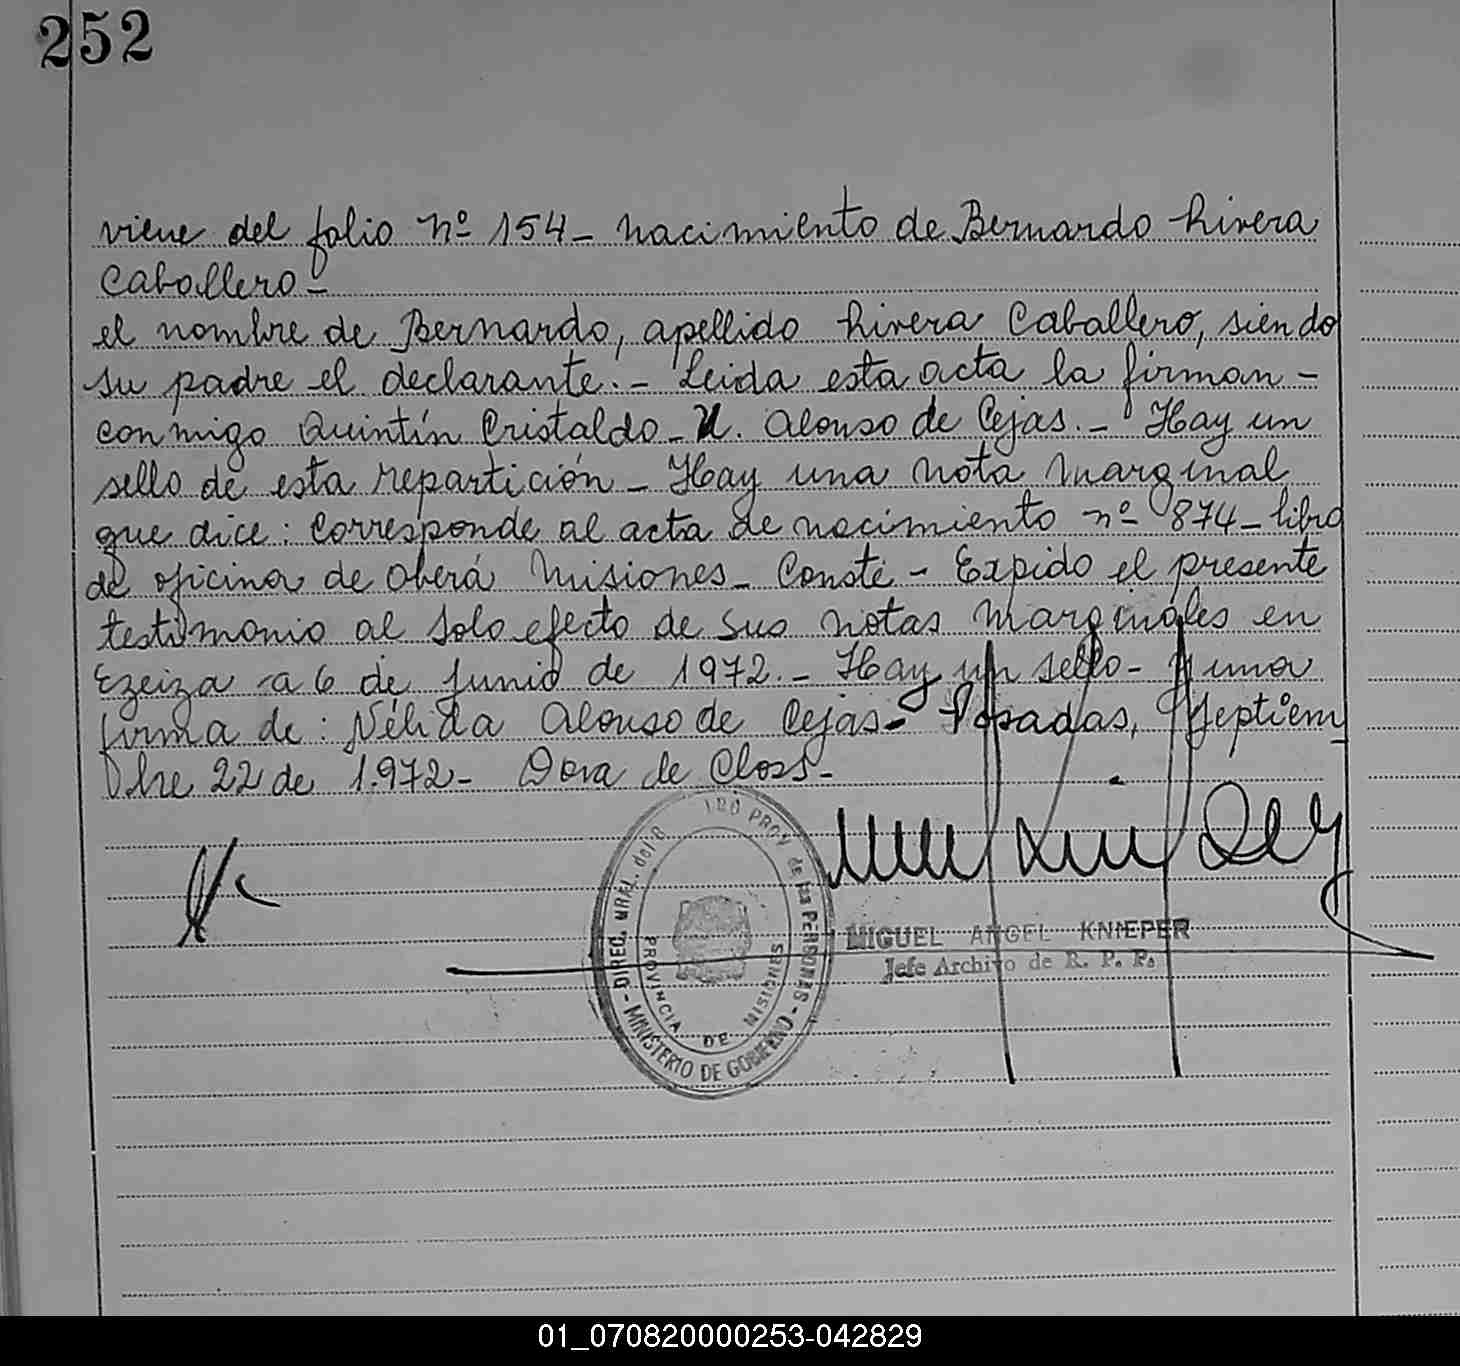 252
viene del folio nº 154- nacimiento de Bernardo Rivera
Caballero-
el nombre de Bernardo, apellido Rivera Caballero, siendo
su padre el declarante.- Leida esta acta la firman-
conmigo Quintín Cristaldo- N. Alonso de Cejas.- Hay un
sello de esta repartición- Hay una nota marginal
que dice: Corresponde al acta de nacimiento nº 874- libro
de oficina de Oberá Misiones- Conste- Expido el presente
testimonio al solo efecto de sus notas marginales en
Ezeiza a 6 de junio de 1972.- Hay un sello- y una
firma de: Nélida Alonso de Cejas- Posadas, Septiem
bre 22 de 1.972- Dora de Closs-
PROV de las PERSONAS - MINISTERIO DE GOBIERNO - DIREC.
PROVINCIA DE MISIONES
MIGUEL ANGEL KNIEPER
Jefe Archivo de R. P. P.
01_070820000253-042829